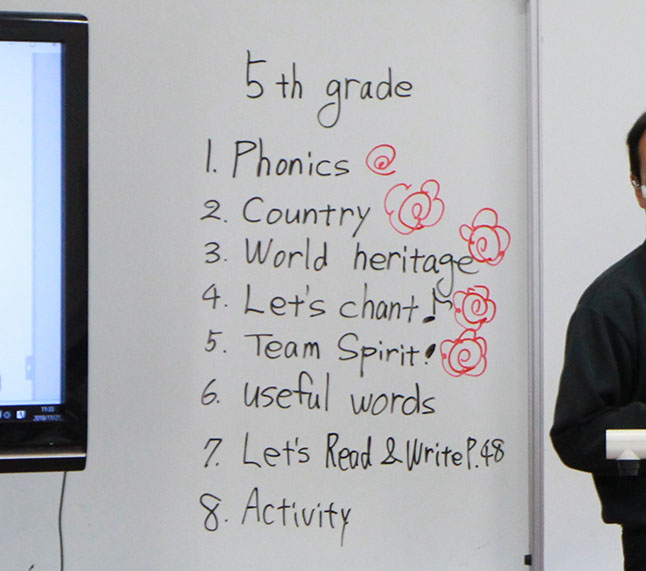 5th grade
1. Phonics
2. Country
3. World heritage
4. Let's chant♪
5. Team Spirit!
6. useful words
7. Let's Read & Write P.48
8. Activity
11:33